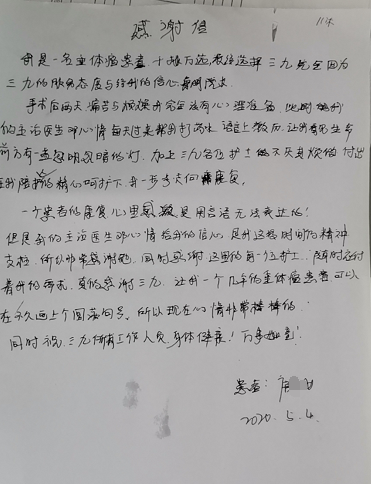 感谢信
114
我是一名垂体瘤患者 十难万选最后选择三九完全因为
三九的服务态度与给我的信心
手术后两天痛苦与模糊我完全没有心理准备 此时给我
的主治医生邓心情每天过来帮我打 语言上教后 让我看见生命
前方有一盏明亮的灯 加上三九各位护士 不失 付出
在我 精心呵护下 我一步步走向 康复
一个患者的康复心里感激是用言语无法表达的!
但是我的主治医生邓心情给我的信心 是我这段时间的精神
支柱 所以非常感谢她 同时感谢这里的每一位护工 随时应付
着我的需求 真的感谢三九 让我一个几年的垂体瘤患者可以
在 画上个圆满句号 所以现在心情非常棒棒的
同时祝三九所有工作人员 身体健康! 万事如意!
患者: 唐
2020. 5. 4.